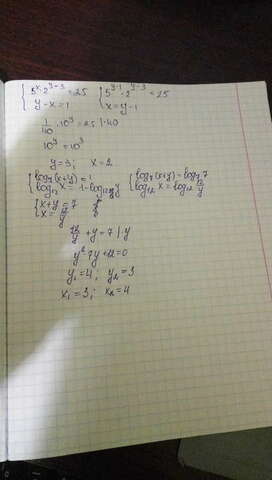 { 5^x · 2^(y-3) = 25   { 5^(y-1) · 2^(y-3) = 25
{ y - x = 1   { x = y - 1
1/40 · 10^y = 25 | · 40
10^y = 10^3
y = 3; x = 2
{ log₇(x+y) = 1   { log₇(x+y) = log₇ 7
{ log₁₂ x = 1 - log₁₂ y   { log₁₂ x = log₁₂ 12/y
{ x + y = 7
{ x = 12/y
12/y + y = 7 | · y
y² 7y + 12 = 0
y₁ = 4; y₂ = 3
x₁ = 3; x₂ = 4